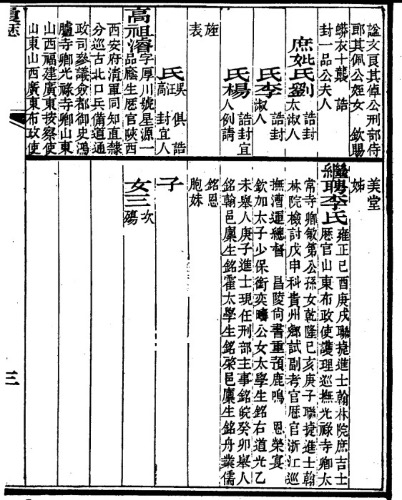 諡文良其倬公刑部侍
郎其佩公姪女 欽賜
蟒衣十襲 誥
封一品公夫人
庶妣氏劉 誥封
太淑人
氏李 誥封
淑人
氏楊 誥封宜
人例請
旌
表
氏 吳 俱 誥
汪
高 封宜人
高祖濬 字厚川號星源一
品廕生歷官陝西
西安府清軍同知直隸
分巡古北口兵備道通
政司參議僉都御史鴻
臚寺卿光祿寺卿山東
山西福建廣東按察使
山東山西廣東布政使
美堂
姊
繼聘李氏 雍正己酉庚戌聯捷進士翰林院庶吉士
歷官山東布政使護理巡撫光祿寺卿太
常寺卿敏第公孫女乾隆己亥庚子聯捷進士翰
林院檢討戊申科貴州鄉試副考官歷官浙江巡
撫漕運總督 昌陵尚書重預鹿鳴 恩榮宴
欽加太子少保銜奕疇公女太學生銘右道光乙
未舉人庚子進士現任刑部主事銘皖癸卯舉人
銘翰邑廩生銘霍太學生銘榮邑廩生銘舟業儒
銘恩
胞妹
子
女三 次
殤
三